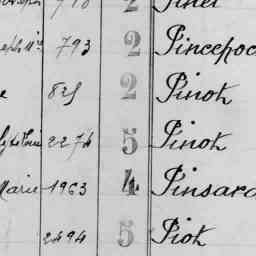 2 Pinel
793 2 Pincepoc
825 2 Pinot
2274 5 Pinot
Marie 1963 4 Pinsard
2494 5 Piot